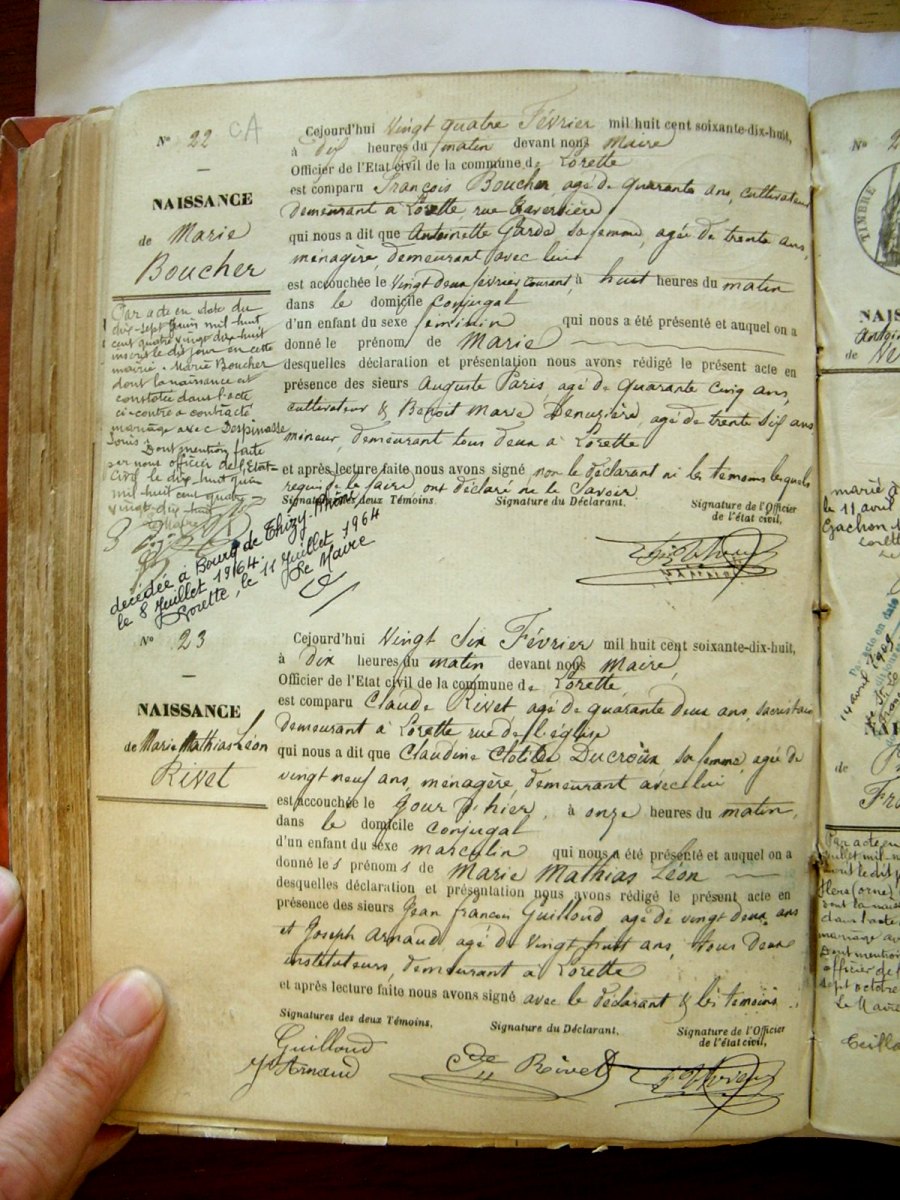 N° 22 CA
NAISSANCE
de Marie
Boucher
Par acte en date du
dix-sept juin mil-huit
cent quatre vingt dix-huit
inscrit le dit jour en cette
mairie, Marie Boucher
dont la naissance est
constatée dans l'acte
ci-contre a contracté
mariage avec Despinasse
Louis. Dont mention faite
par nous officier de l'État-
Civil le dix-huit juin
mil-huit cent quatre
vingt-dix-huit
décédée à Bourg de Thizy-Rhône
le 8 Juillet 1964.
Lorette, le 11 Juillet 1964
Le Maire
Cejourd'hui Vingt quatre Février mil huit cent soixante-dix-huit,
à dix heures du matin devant nous Maire
Officier de l'Etat civil de la commune de Lorette
est comparu François Boucher agé de quarante ans, cultivateur
demeurant à Lorette rue
qui nous a dit que Antoinette Garde sa femme, agée de trente ans,
ménagère, demeurant avec lui
est accouchée le Vingt deux février courant, à huit heures du matin
dans le domicile conjugal
d'un enfant du sexe féminin qui nous a été présenté et auquel on a
donné le prénom de Marie
desquelles déclaration et présentation nous avons rédigé le présent acte en
présence des sieurs Auguste Paris, agé de quarante cinq ans,
cultivateur & Benoit Marie agé de trente six ans
mineur, demeurant tous deux à Lorette
et après lecture faite nous avons signé non le déclarant ni les témoins lesquels
requis de le faire ont déclaré ne le savoir.
Signatures des deux Témoins. Signature du Déclarant. Signature de l'Officier
de l'état civil,
N° 23
NAISSANCE
de Marie Mathias Léon
Rivet
Cejourd'hui Vingt Six Février mil huit cent soixante-dix-huit,
à dix heures du matin devant nous Maire
Officier de l'Etat civil de la commune de Lorette
est comparu Claude Rivet agé de quarante deux ans, sacristain
demeurant à Lorette rue de l'église
qui nous a dit que Claudine Clotilde Ducroux sa femme, agée de
vingt neuf ans, ménagère, demeurant avec lui
est accouchée le jour d'hier, à onze heures du matin,
dans le domicile conjugal
d'un enfant du sexe masculin qui nous a été présenté et auquel on a
donné les prénoms de Marie Mathias Léon
desquelles déclaration et présentation nous avons rédigé le présent acte en
présence des sieurs Jean François Guilloud agé de vingt deux ans
et Joseph Arnaud, agé de Vingt huit ans, tous deux
instituteurs, demeurant à Lorette
et après lecture faite nous avons signé avec le déclarant & les témoins.
Signatures des deux Témoins, Signature du Déclarant, Signature de l'Officier
de l'état civil,
Guilloud
Arnaud
Rivet
N° 2
TIMBRE
NAIS
de
marié à
le 11 avril
Gachon
14 avril 1909
de
Fr
Le Maire